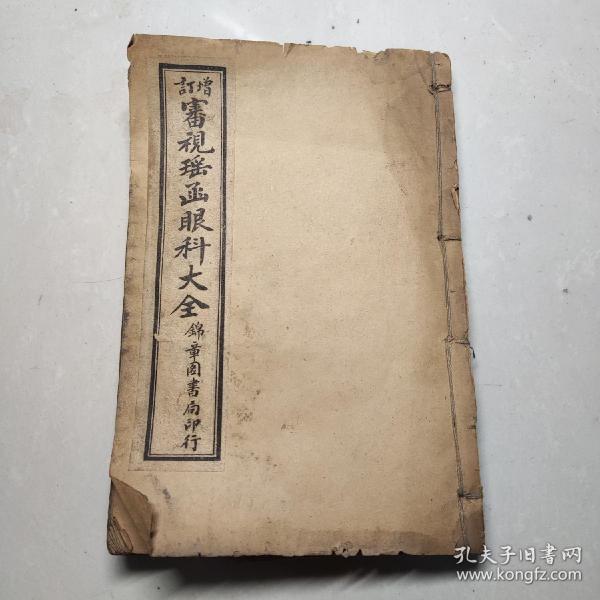 增訂
審視瑶函眼科大全
錦章図書局印行
孔夫子旧书网
www.kongfz.com